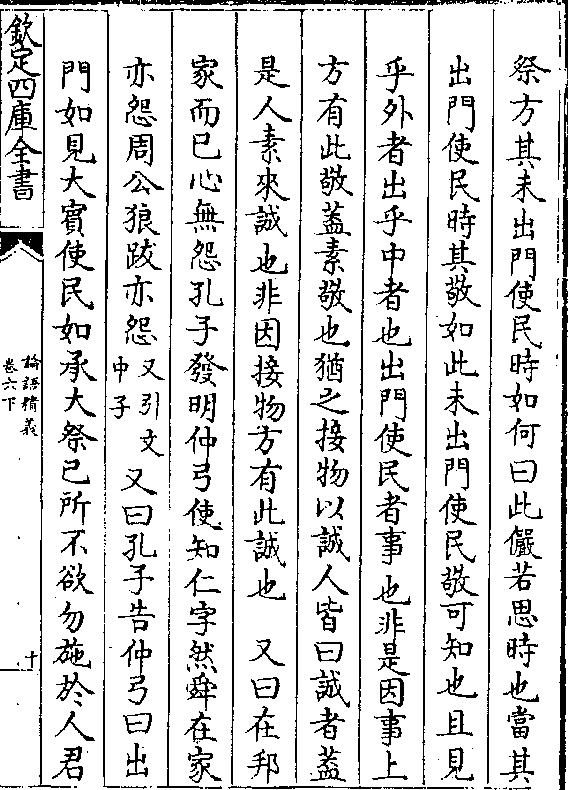 祭方其未出門使民時如何曰此儼若思時也當其
出門使民時其敬如此未出門使民敬可知也且見
乎外者出乎中者也出門使民者事也非是因事上
方有此敬蓋素敬也猶之接物以誠人皆曰誠者蓋
是人素來誠也非因接物方有此誠也　又曰在邦
家而已心無怨孔子發明仲弓使知仁字然舜在家
亦怨周公狼跋亦怨又引文中子又曰孔子告仲弓曰出
門如見大賓使民如承大祭已所不欲勿施於人君
欽定四庫全書
論語精義
卷六下
十